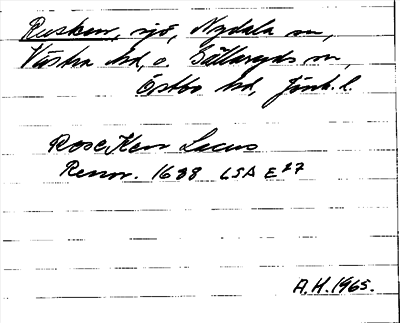 Rusken, sjö, Nydala sn,
Västra hd, o. Gällaryds sn,
Östbo hd, Jönk. l.
RoseKen Lacus
Rennr. 1688 LSA E 27
A.H. 1965.